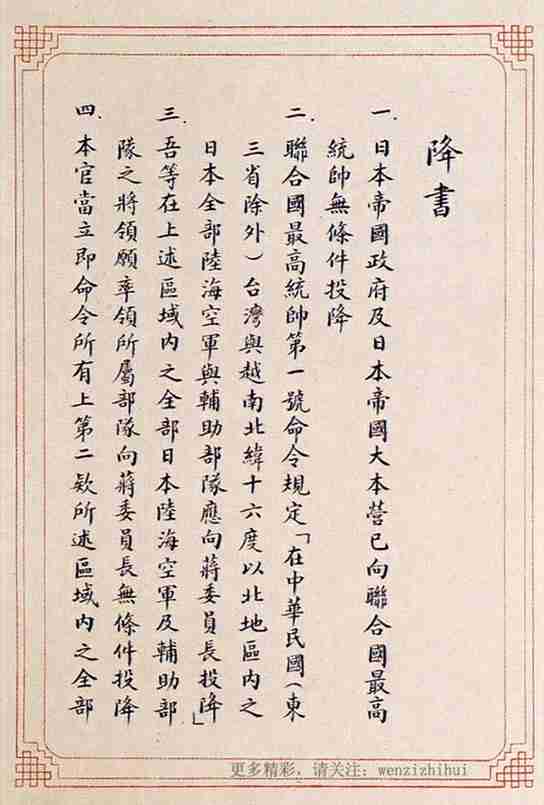 降書
一.日本帝國政府及日本帝國大本營已向聯合國最高
統帥無條件投降
二.聯合國最高統帥第一號命令規定「在中華民國(東
三省除外)台灣與越南北緯十六度以北地區內之
日本全部陸海空軍與輔助部隊應向蔣委員長投降」
三.吾等在上述區域內之全部日本陸海空軍及輔助部
隊之將領願率領所屬部隊向蔣委員長無條件投降
四.本官當立即命令所有上第二款所述區域內之全部
更多精彩，请关注：wenzizhihui